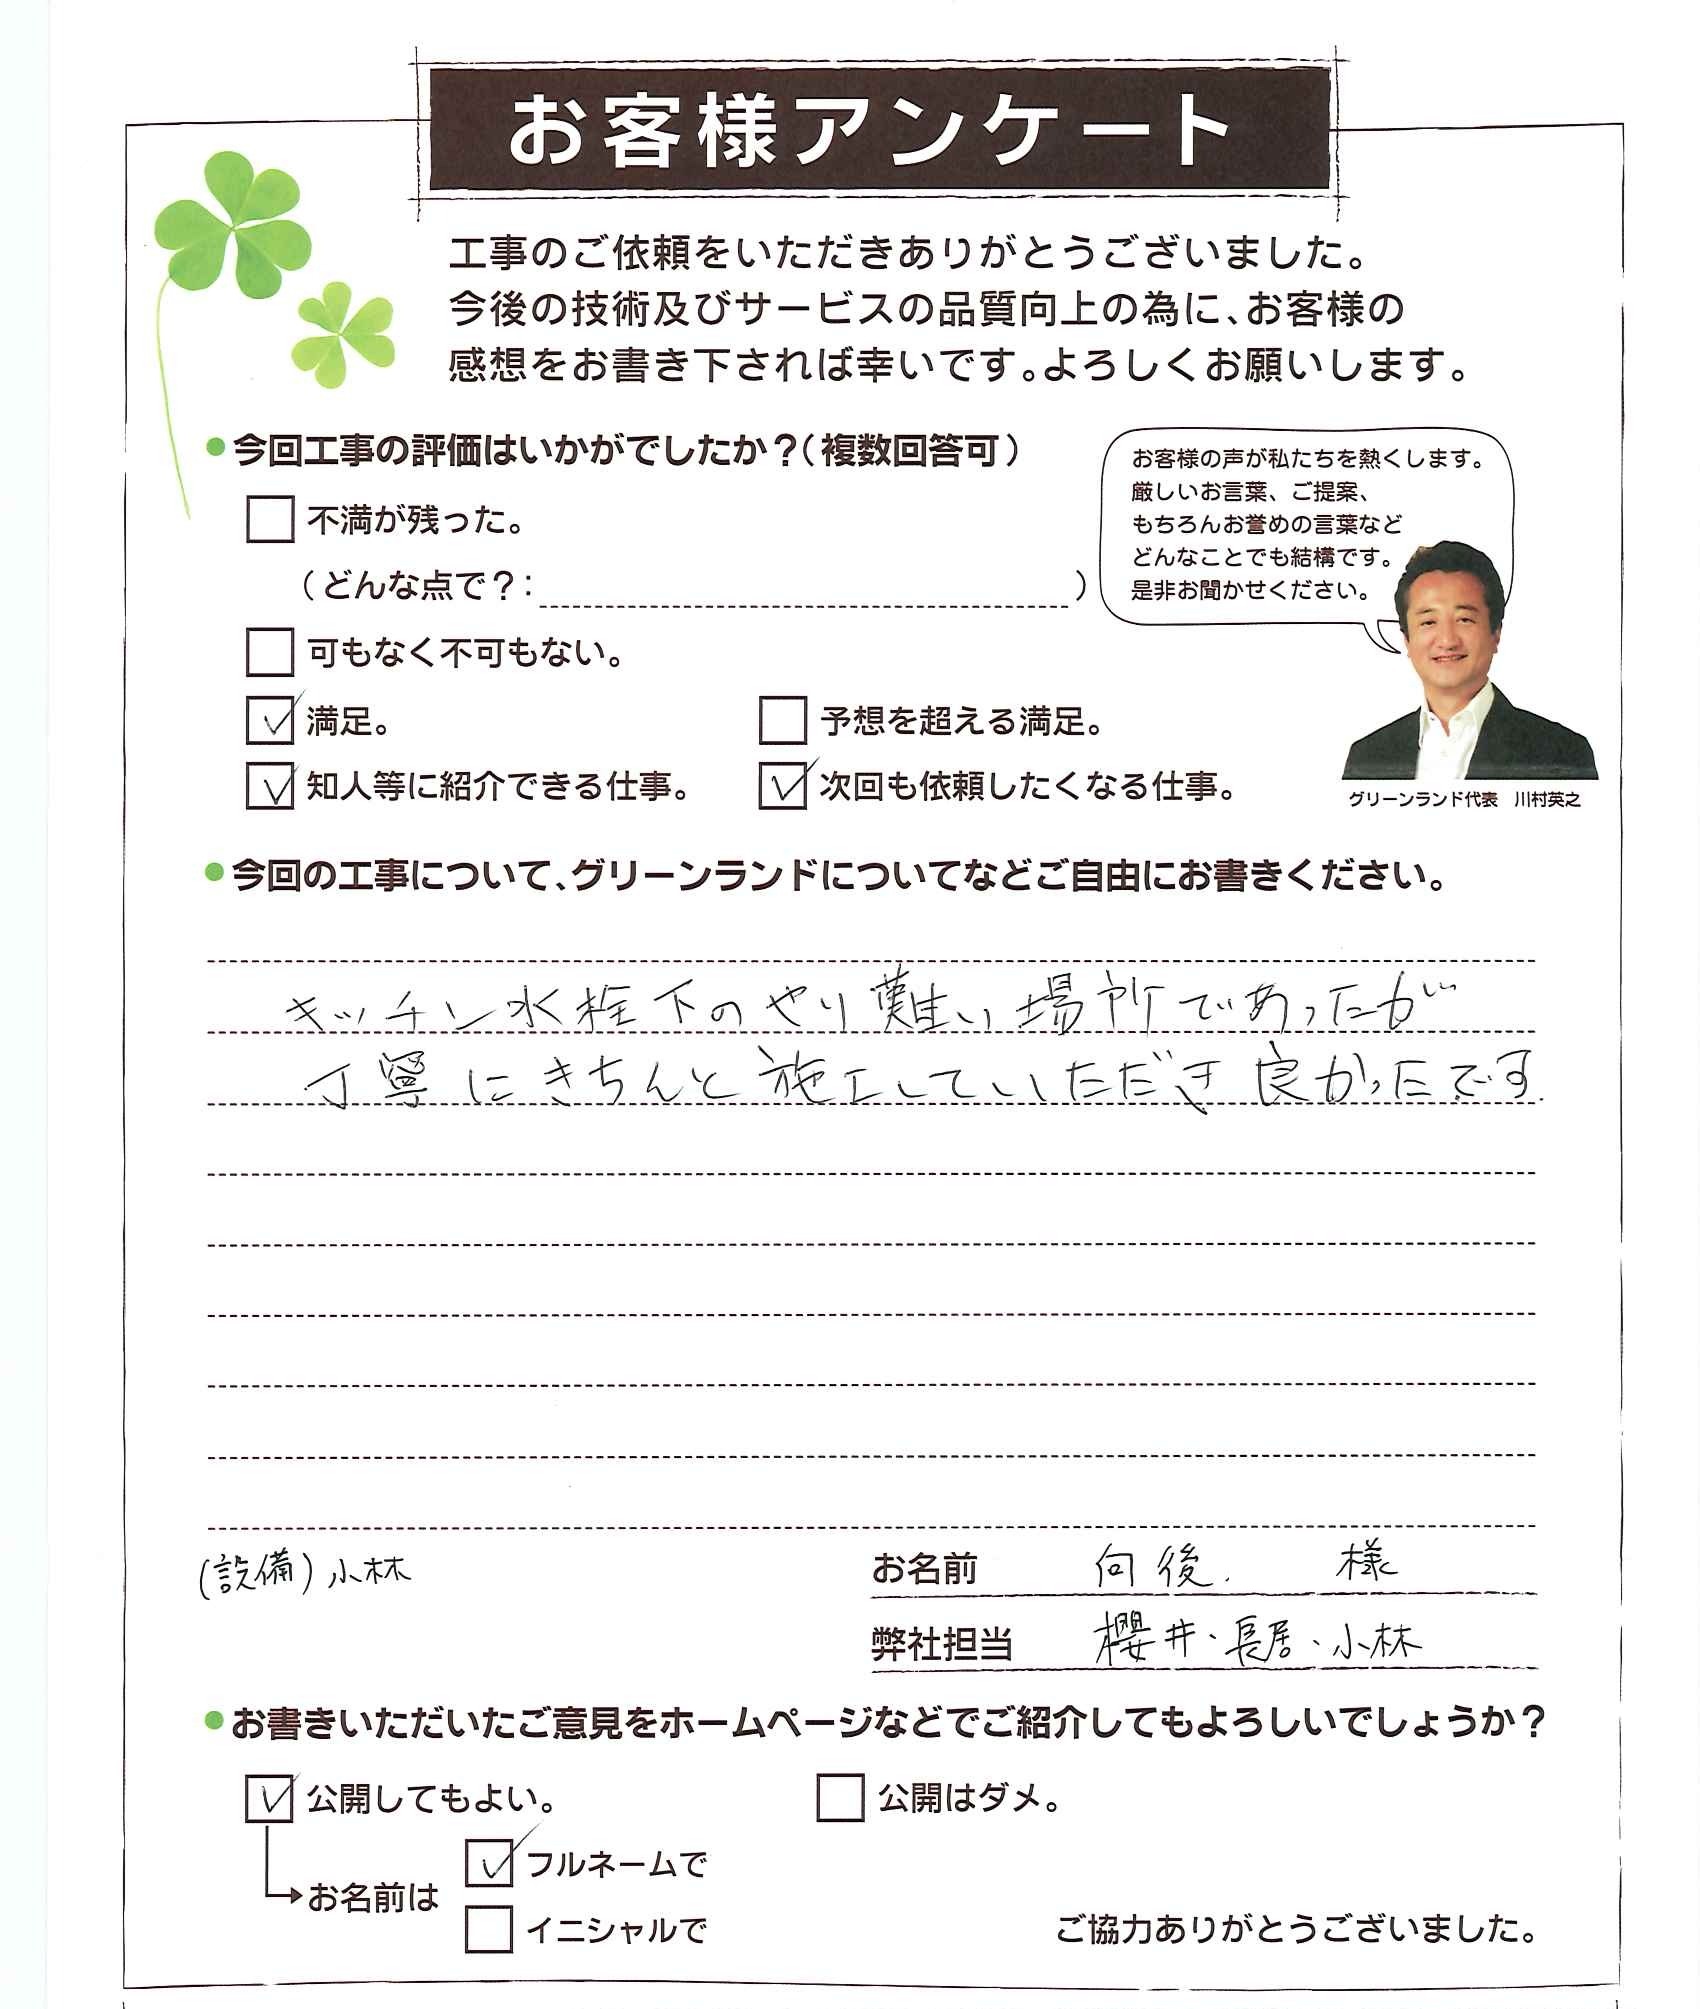 お客様アンケート
工事のご依頼をいただきありがとうございました。
今後の技術及びサービスの品質向上の為に、お客様の
感想をお書き下されば幸いです。よろしくお願いします。
●今回工事の評価はいかがでしたか？（複数回答可）
不満が残った。
（どんな点で？：　）
可もなく不可もない。
満足。
予想を超える満足。
知人等に紹介できる仕事。
次回も依頼したくなる仕事。
お客様の声が私たちを熱くします。
厳しいお言葉、ご提案、
もちろんお誉めの言葉など
どんなことでも結構です。
是非お聞かせください。
グリーンランド代表　川村英之
●今回の工事について、グリーンランドについてなどご自由にお書きください。
キッチン水栓下のやり難い場所であったが
丁寧にきちんと施工していただき良かったです
(設備)小林
お名前　向後.　様
弊社担当　櫻井、長居、小林
●お書きいただいたご意見をホームページなどでご紹介してもよろしいでしょうか？
公開してもよい。
公開はダメ。
お名前は
フルネームで
イニシャルで
ご協力ありがとうございました。